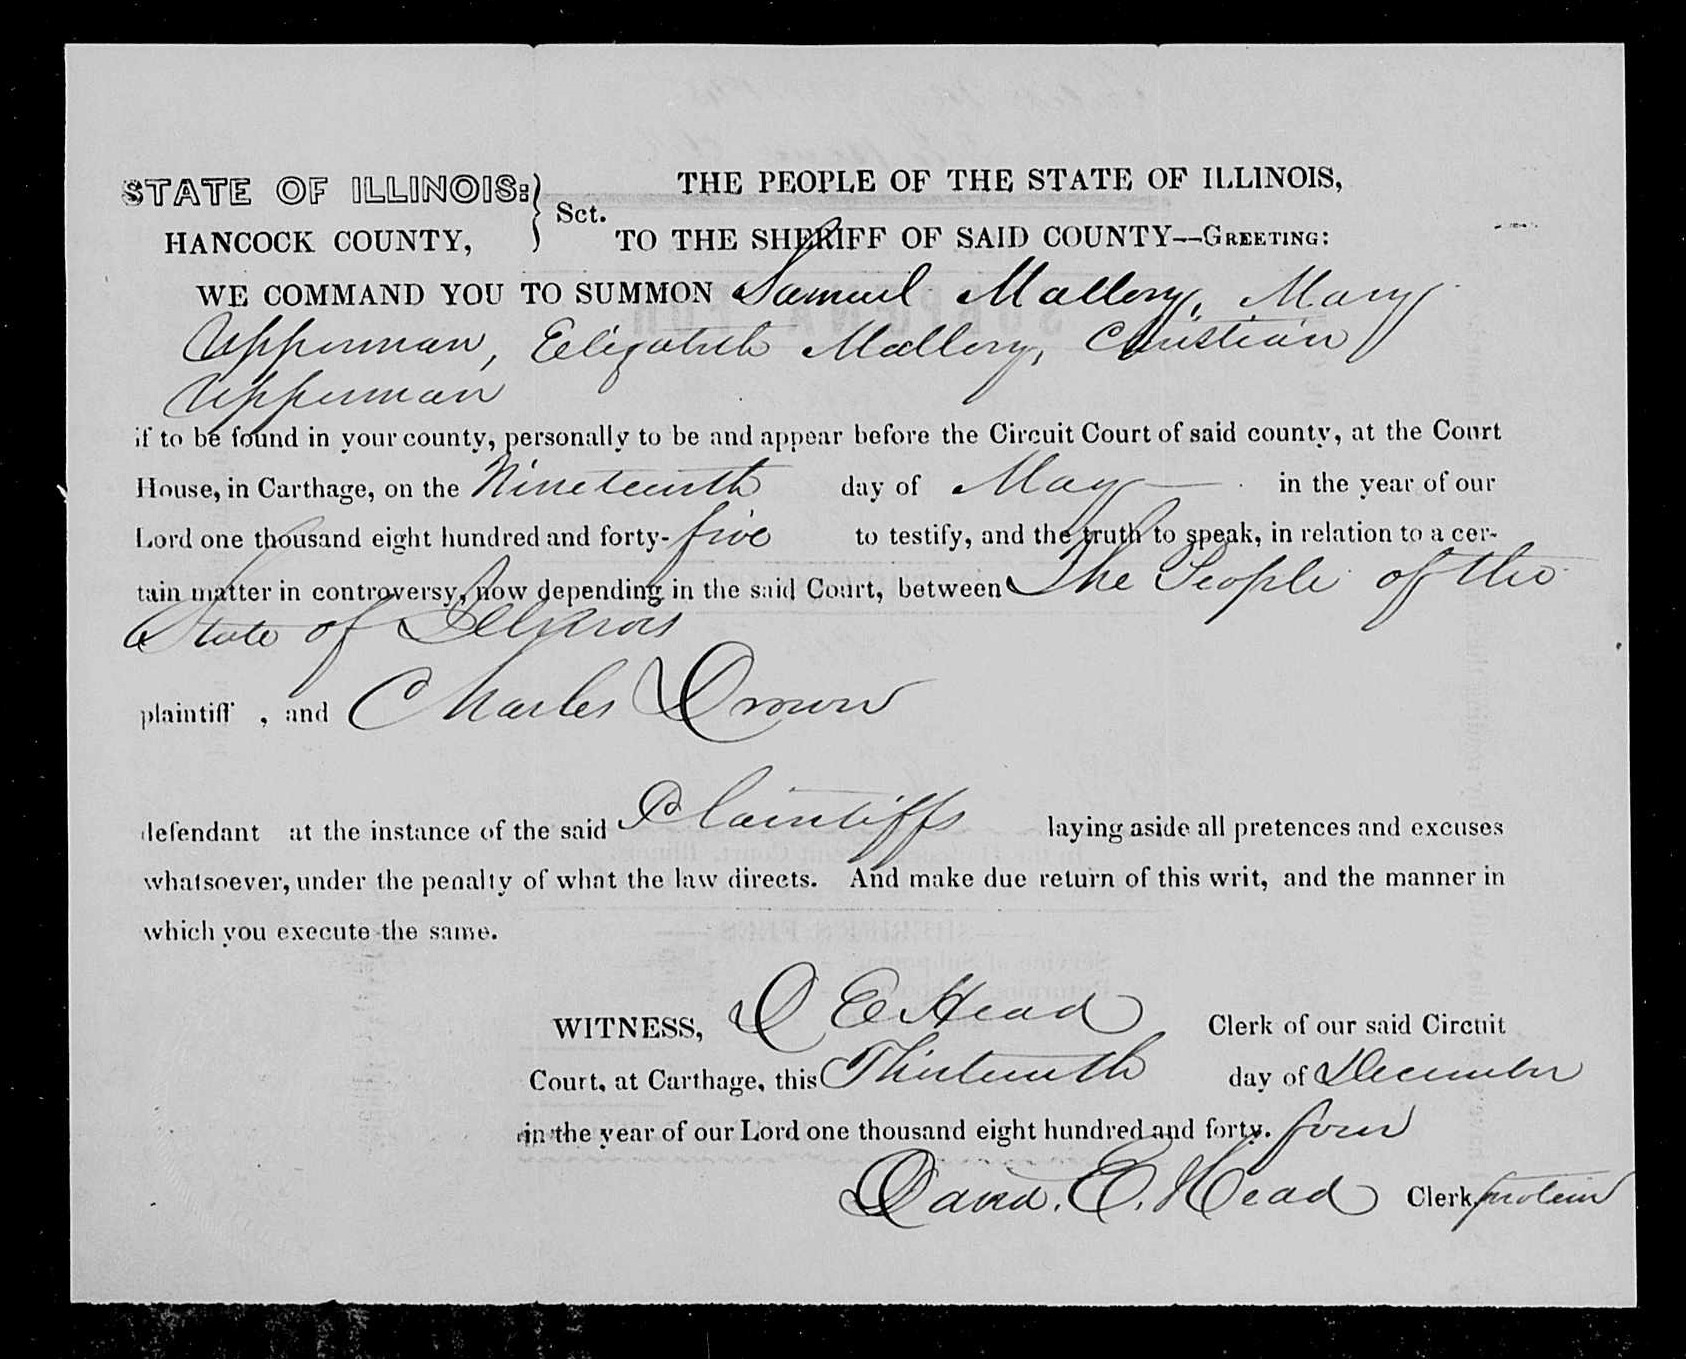 STATE OF ILLINOIS: } Sct. THE PEOPLE OF THE STATE OF ILLINOIS,
HANCOCK COUNTY, TO THE SHERIFF OF SAID COUNTY—GREETING:
WE COMMAND YOU TO SUMMON Samuel Mallory, Mary
Upperman, Elizabeth Mallory, Christian
Upperman
if to be found in your county, personally to be and appear before the Circuit Court of said county, at the Court
House, in Carthage, on the Nineteenth day of May in the year of our
Lord one thousand eight hundred and forty-five to testify, and the truth to speak, in relation to a cer-
tain matter in controversy, now depending in the said Court, between The People of the
State of Illinois
plaintiff , and Charles Drown
defendant at the instance of the said Plaintiffs laying aside all pretences and excuses
whatsoever, under the penalty of what the law directs. And make due return of this writ, and the manner in
which you execute the same.
WITNESS, D E Head Clerk of our said Circuit
Court, at Carthage, this Thirteenth day of December
in the year of our Lord one thousand eight hundred and forty. four
David. E. Head Clerk protem